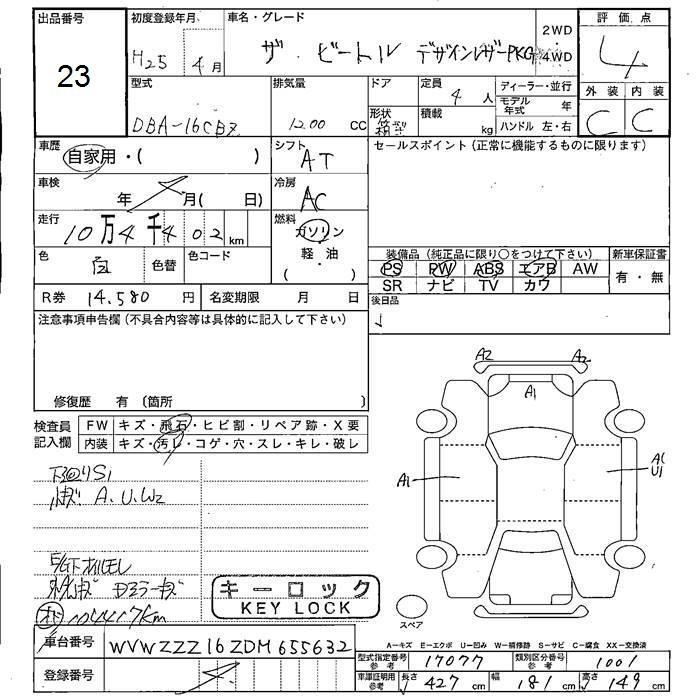 出品番号
23
初度登録年月
H25 4月
車名・グレード
ザ・ビートル デザインレザーPKG
2WD
4WD
評価点
4
外装 内装
C C
型式
DBA-16CBZ
排気量
1200 CC
ドア
形状
定員
4人
積載
kg
ディーラー・並行
モデル年式 年
ハンドル 左・右
車歴
自家用・( )
シフト
AT
セールスポイント(正常に機能するものに限ります)
車検
年 月( 日)
冷房
AC
走行
10万4千402km
燃料
ガソリン
・
軽・油
( )
色
白
色替
色コード
装備品(純正品に限り○をつけて下さい)
新車保証書
PS PW ABS エアB AW
SR ナビ TV カワ
有・無
R券 14,580円
名変期限 月 日
後日品
注意事項申告欄(不具合内容等は具体的に記入して下さい)
修復歴 有(箇所 )
検査員記入欄
FW キズ・飛石・ヒビ割・リペア跡・X要
内装 キズ・汚レ・コゲ・穴・スレ・キレ・破レ
下回りS1
A、U、W2
E/G下オイルモレ
キーロック
KEY LOCK
A2 A2
A1
A1
A1
U1
スペア
A−キズ E−エクボ U−凹み W−補修跡 S−サビ C−腐食 XX−交換済
車台番号 WVWZZZ16ZDM655632
登録番号
型式指定番号 参考 17077
類別区分番号 参考 1001
車庫証明用 参考 長さ 427cm 幅 181cm 高さ 149cm